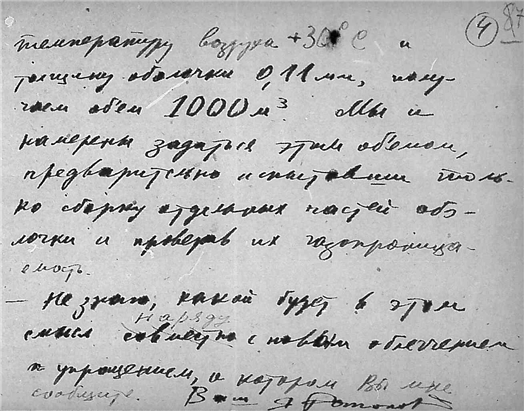 ④ 87
температуру воздуха +30° С и
толщину оболочки 0,11 мм, полу-
чаем объем 1000 м³. Мы и
намерены задаться этим объемом,
предварительно испытавши толь-
ко сборку отдельных частей обо-
лочки и проверив их газопроница-
емость.
— Не знаю, какой будет в этом
наряду
смысл совместно с новым облегчением
и упрощением, о котором Вы мне
сообщите. Ваш